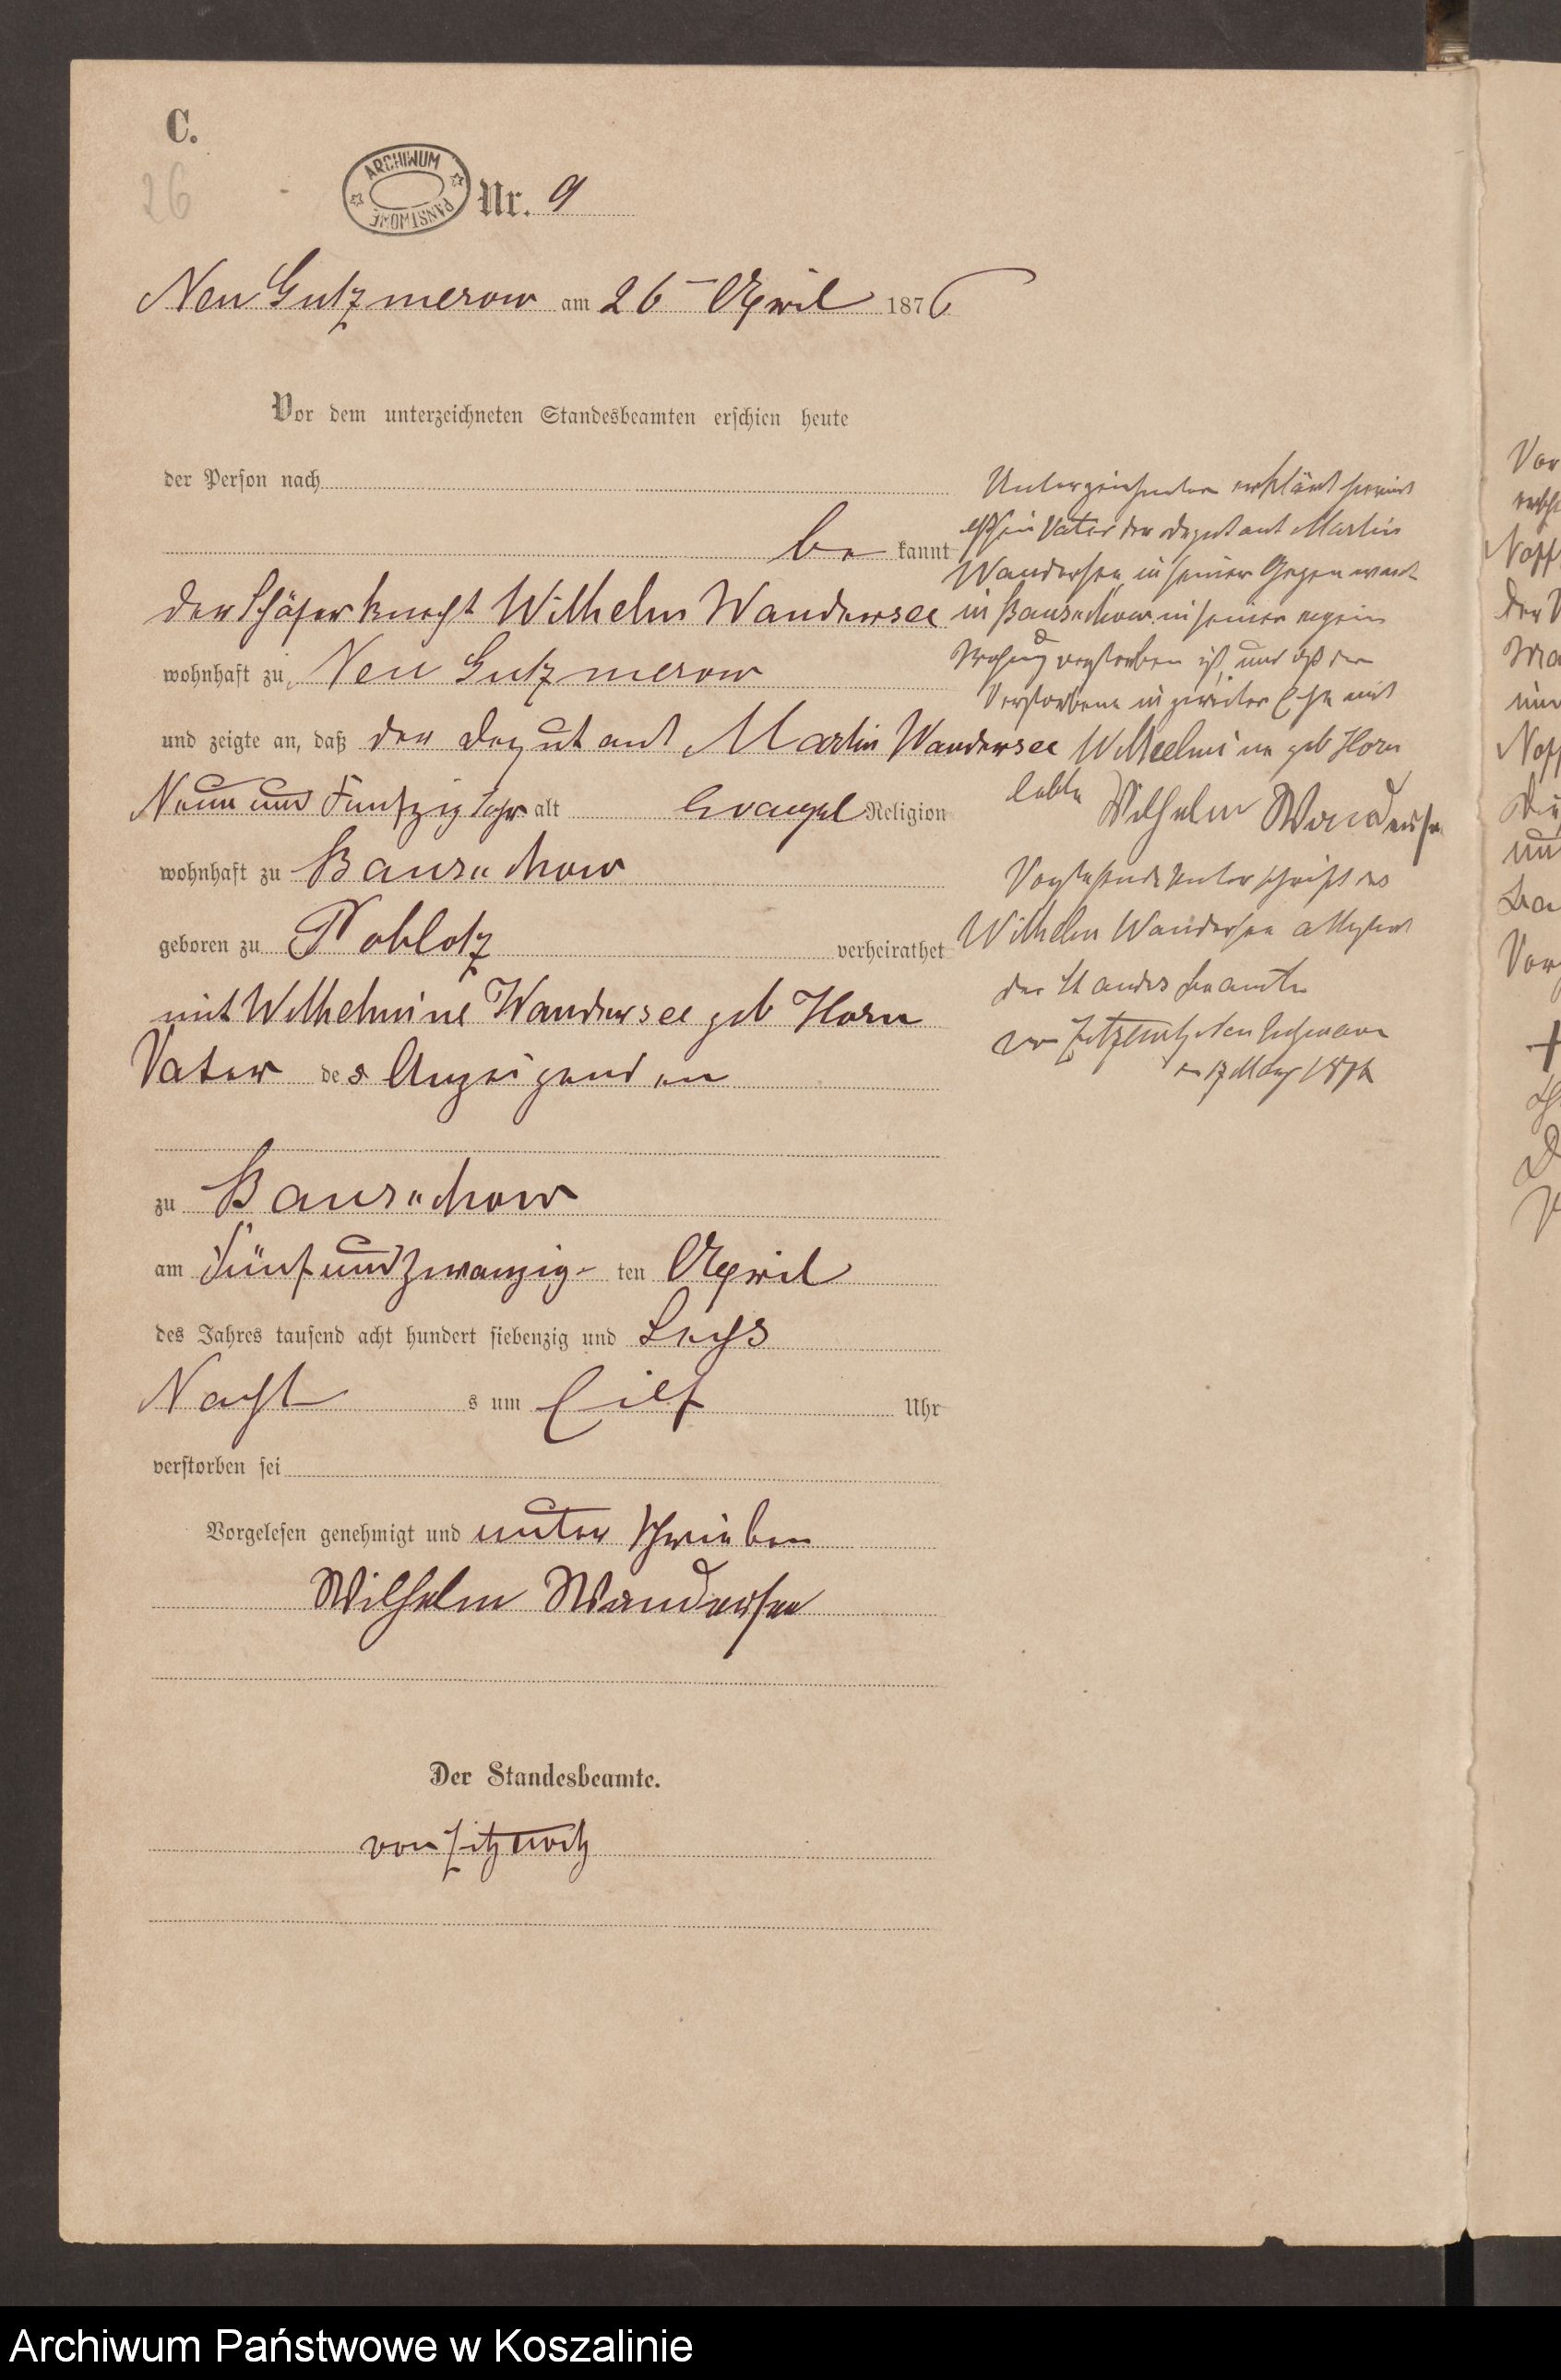 C.
26
ARCHIWUM PAŃSTWOWE
Nr. 9
Neu Gutzmerow am 26 April 1876
Vor dem unterzeichneten Standesbeamten erschien heute
der Person nach
be kannt
der Schäferknecht Wilhelm Wandersee
wohnhaft zu Neu Gutzmerow
und zeigte an, daß der Deputant Martin Wandersee
Neun und Funfzig Jahr alt Evangel Religion
wohnhaft zu
geboren zu Poblotz verheirathet
mit Wilhelmine Wandersee geb Horn
Vater des Anzeigenden
zu
am Fünf und Zwanzig ten April
des Jahres tausend acht hundert siebenzig und Sechs
Nacht s um Eilf Uhr
verstorben sei
Vorgelesen genehmigt und unterschrieben
Wilhelm Wandersee
Der Standesbeamte.
von Zitzewitz
Unterzeichneter erklärt hiermit
daß sein Vater der Deputant Martin
Wandersee in seiner Gegenwart
in seiner
Wohnung verstorben ist, und daß der
Verstorbene in zweiter Ehe mit
Wilhelmine geb Horn
lebte Wilhelm Wandersee
Vorstehende Unterschrift des
Wilhelm Wandersee attestirt
der Standesbeamte
von Zitzewitz Neu Gutzmerow
17 May 1876
Archiwum Państwowe w Koszalinie